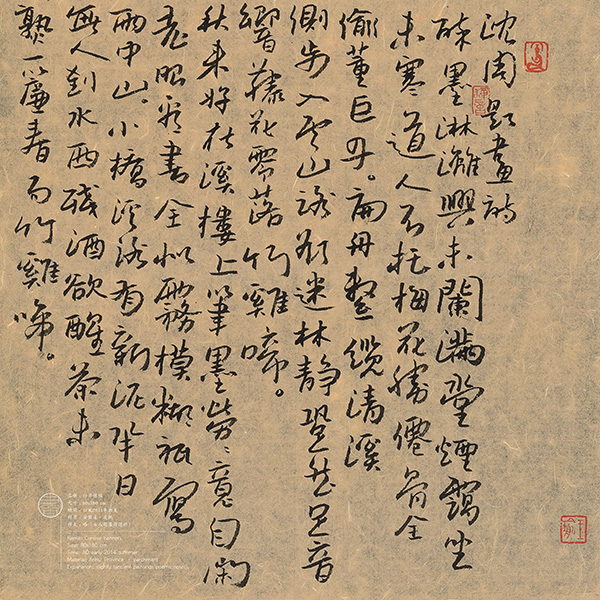 沈周題畫詩
醉墨淋漓興未闌滿堂煙靄坐
未寒道人不托梅花勝僊骨全
偷董巨丹。扁舟繫纜清溪
側步入空山路欲迷林靜跫然足音
響藤花零落竹雞啼。
秋來好在溪樓上筆墨勞勞意自閑
老眼看書全似霧模糊祇寫
雨中山。小橋溪路有新泥半日
無人到水西殘酒欲醒茶未
熟一簾春雨竹雞啼。